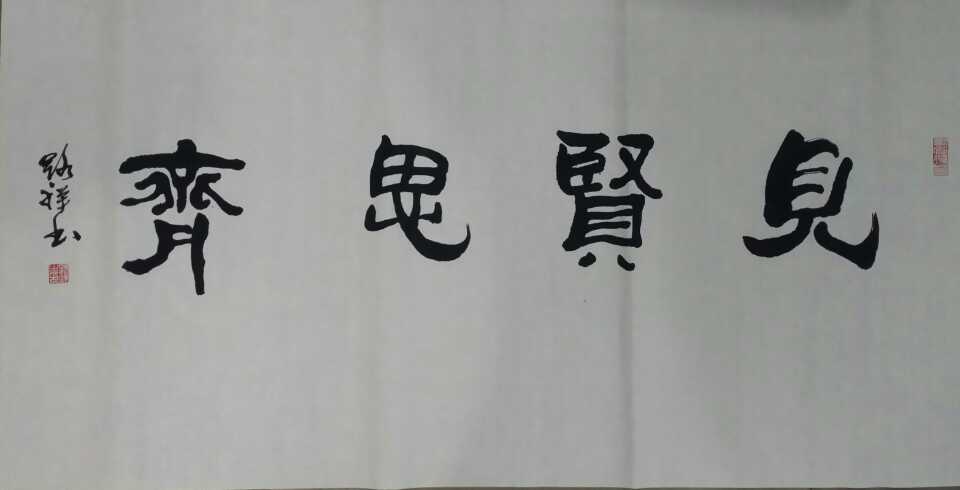 見賢思齊
路祥书